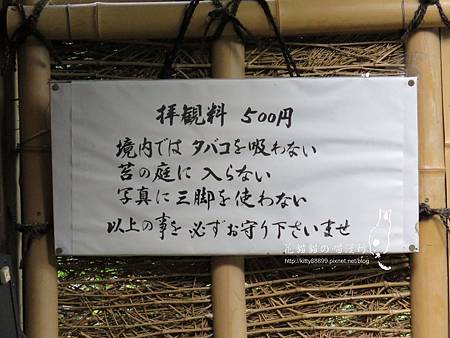 拝観料 500円
境内では タバコを吸わない
苔の庭に 入らない
写真に 三脚を使わない
以上の事を 必ずお守り下さいませ
http://kitty88899.pixnet.net/blog